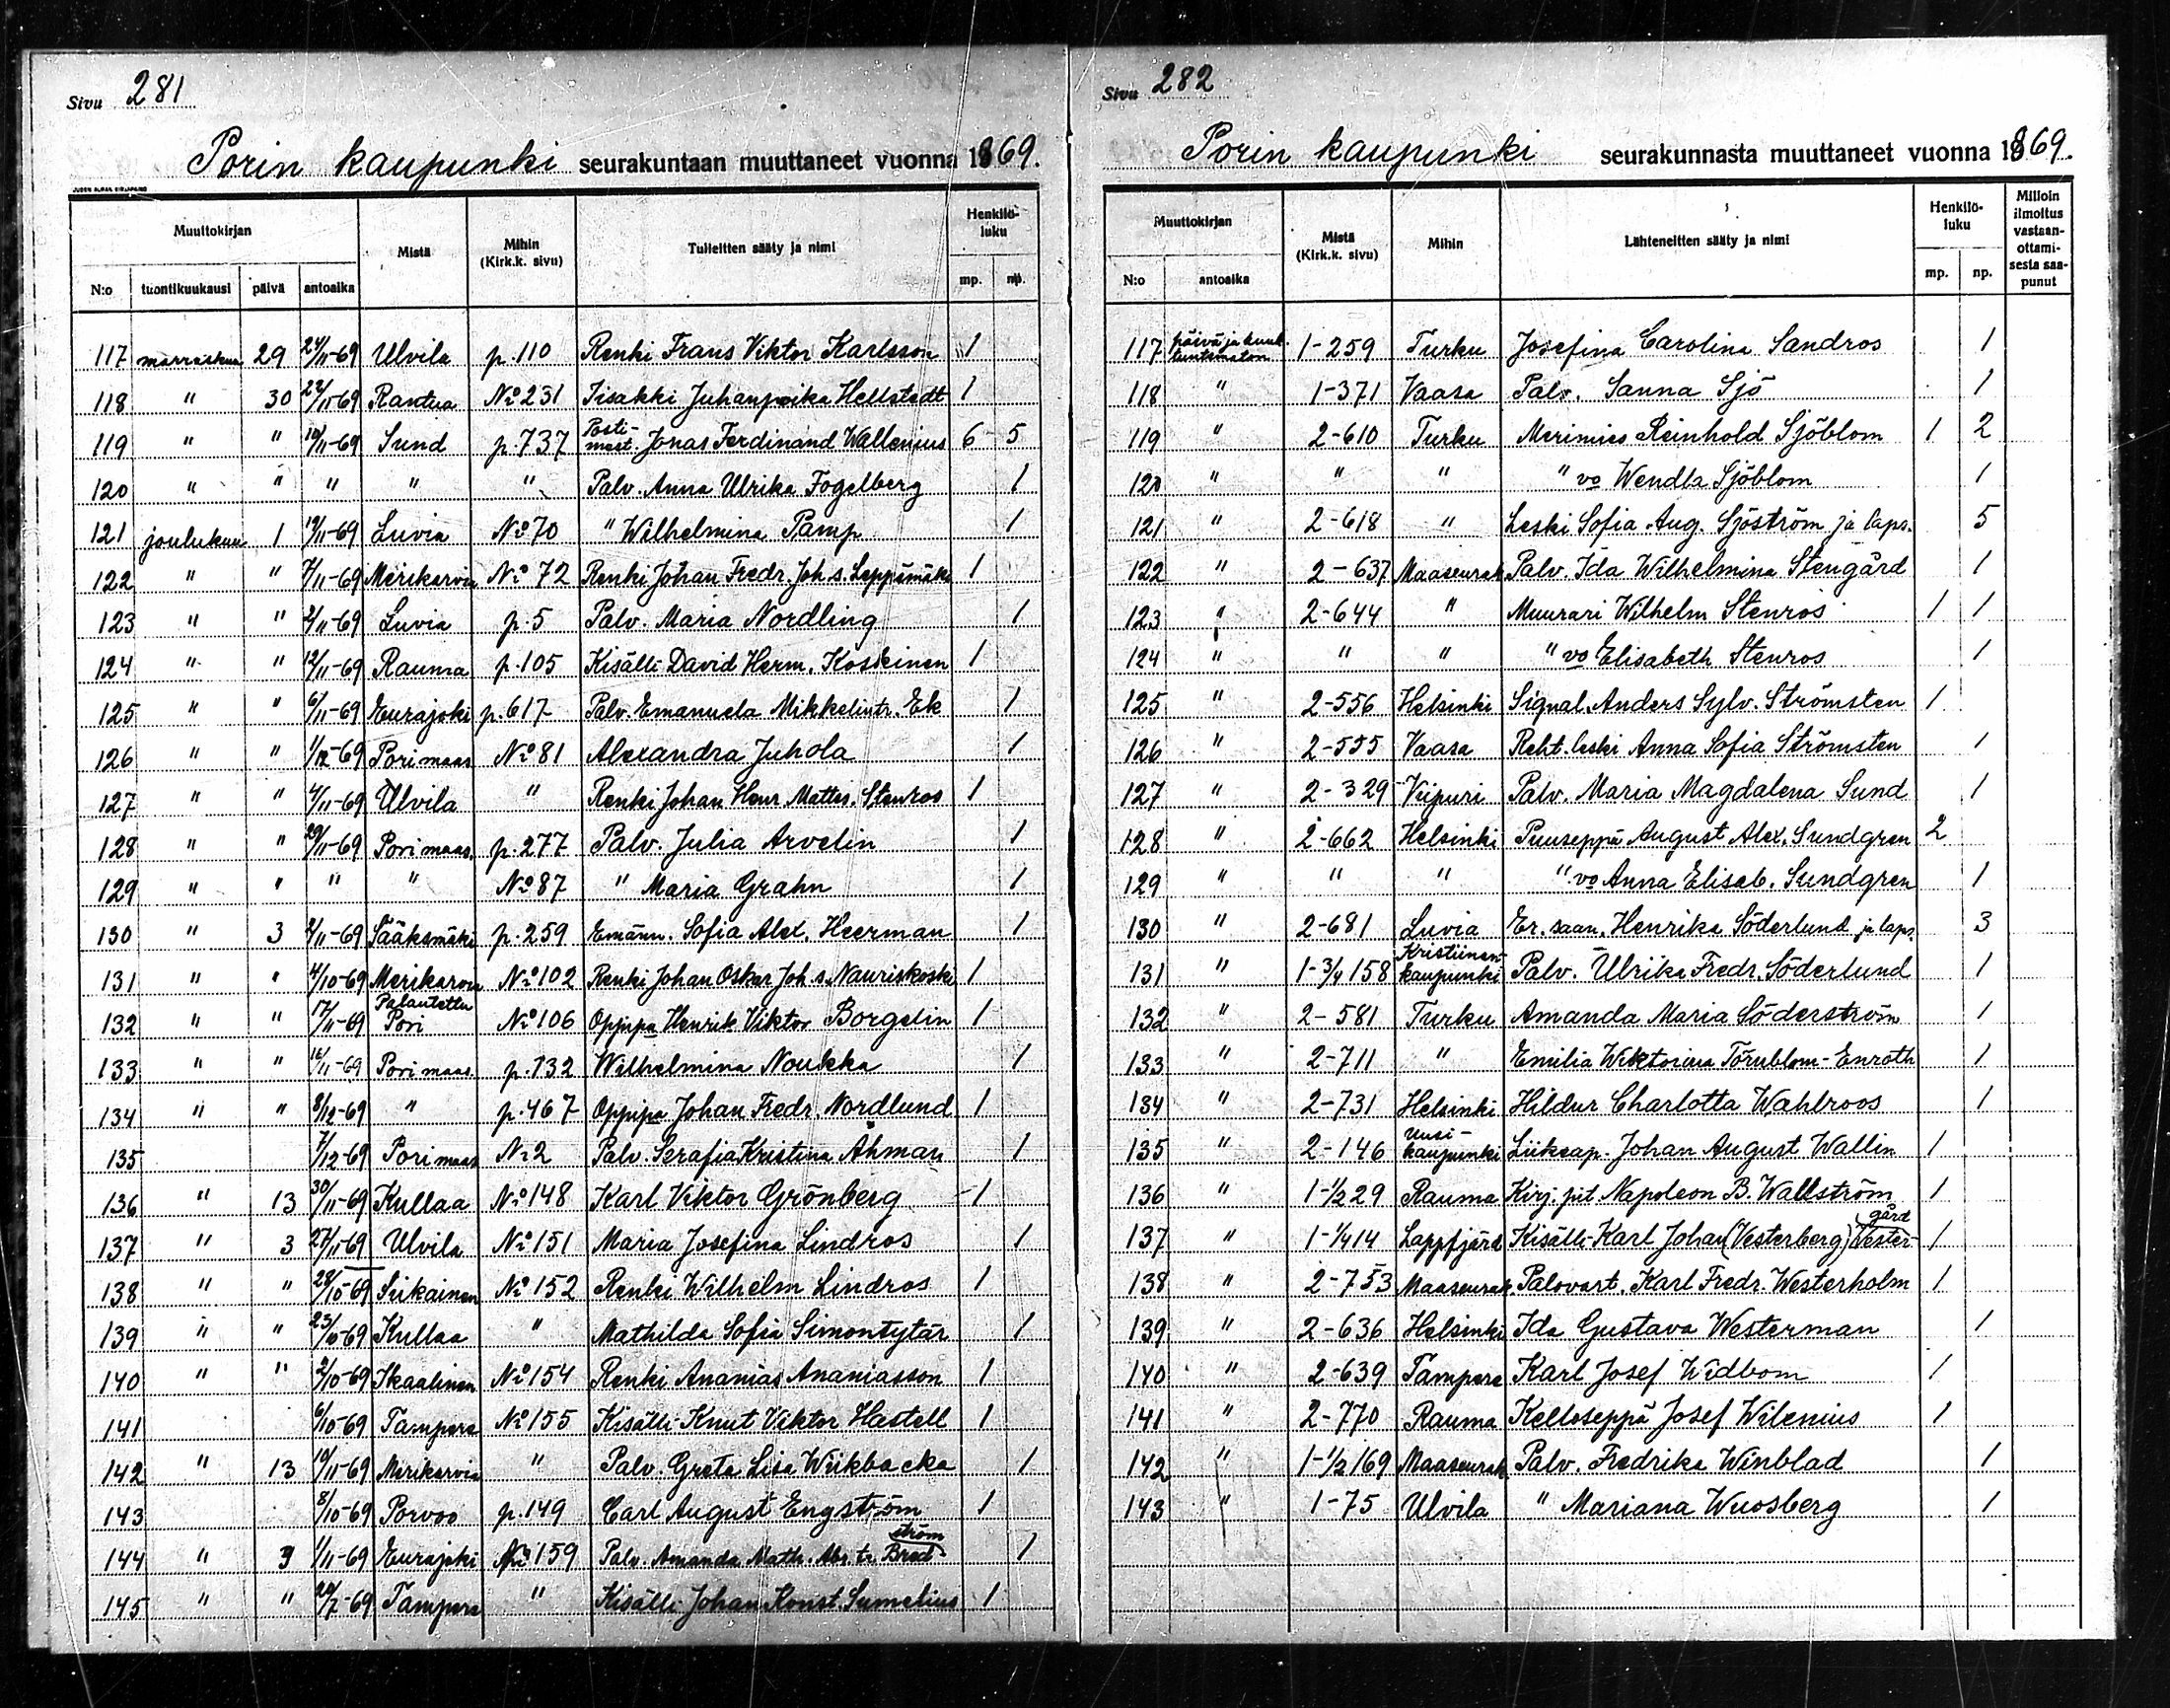 Sivu 281
Porin kaupunki seurakuntaan muuttaneet vuonna 1869.
Muuttokirjan Mistä Mihin (Kirk.k. sivu) Tulleitten sääty ja nimi Henkilöluku
N:o tuontikuukausi päivä antoaika mp. np.
117 marraskuu 29 24/11-69 Ulvila p.110 Renki Frans Viktor Karlsson 1
118 " 30 22/11-69 Rantua No 231 Iisakki Juhanpoika Hellstedt 1
119 " " 10/11-69 Sund p.737 Postimest. Jonas Ferdinand Wallenius 6 5
120 " " " " " Palv. Anna Ulrika Fogelberg 1
121 joulukuu 1 19/11-69 Luvia No 70 " Wilhelmina Pamp 1
122 " " 7/11-69 Merikarvia No 72 Renki Johan Fredr. Joh.s. Leppämäki 1
123 " " 2/11-69 Luvia p.5 Palv. Maria Nordling 1
124 " " 12/11-69 Rauma p.105 Kisälli David Herm. Koskinen 1
125 " " 6/11-69 Eurajoki p.617 Palv. Emanuela Mikkelintr. Ek 1
126 " " 1/12-69 Pori maas. No 81 Alexandra Juhola 1
127 " " 4/11-69 Ulvila " Renki Johan Henr. Mattes. Stenros 1
128 " " 29/11-69 Pori maas. p.277 Palv. Julia Arvelin 1
129 " " " " No 87 " Maria Grahn 1
130 " 3 2/11-69 Sääksmäki p.259 Emänn. Sofia Alex. Heerman 1
131 " " 4/10-69 Merikarvia No 102 Renki Johan Oskar Joh.s. Nauriskoski 1
132 " " 17/11-69 Palautettu Pori No 106 Oppipa Henrik Viktor Borgelin 1
133 " " 16/11-69 Pori maas. p.732 Wilhelmina Noukka 1
134 " " 8/12-69 " p.467 Oppipa Johan Fredr. Nordlund 1
135 7/12-69 Pori maas No 2 Palv. Serafia Kristina Åhman 1
136 " 13 30/11-69 Kullaa No 148 Karl Viktor Grönberg 1
137 " 3 27/11-69 Ulvila No 151 Maria Josefina Lindros 1
138 " " 28/10-69 Siikainen No 152 Renki Wilhelm Lindros 1
139 " " 23/10-69 Kullaa " Mathilda Sofia Simontytär 1
140 " " 2/10-69 Ikaalinen No 154 Renki Ananias Ananiasson 1
141 6/10-69 Tampere No 155 Kisälli Knut Viktor Hastell 1
142 " 13 10/11-69 Merikarvia " Palv. Greta Lisa Wiikbacka 1
143 8/10-69 Porvoo p.149 Carl August Engström 1
144 " 3 1/11-69 Eurajoki No 159 Palv. Amanda Math. Abr. tr. Bredström 1
145 " " 20/7-69 Tampere " Kisälli Johan Konst. Sumelius 1
Sivu 282
Porin kaupunki seurakunnasta muuttaneet vuonna 1869.
Muuttokirjan Mistä (Kirk.k. sivu) Mihin Lähteneitten sääty ja nimi Henkilöluku Milloin ilmoitus vastaanottamisesta saapunut
N:o antoaika mp. np.
117 päivä ja kuuk. tuntematon 1-259 Turku Josefina Carolina Sandros 1
118 " 1-371 Vaasa Palv. Sanna Sjö 1
119 " 2-610 Turku Merimies Reinhold Sjöblom 1 2
120 " " " " vo Wendla Sjöblom 1
121 " 2-618 " Leski Sofia Aug. Sjöström ja laps. 5
122 " 2-637 Maaseurak Palv. Ida Wilhelmina Stengård 1
123 " 2-644 " Muurari Wilhelm Stenros 1 1
124 " " " " vo Elisabeth Stenros 1
125 " 2-556 Helsinki Signal. Anders Sylv. Strömsten 1
126 " 2-555 Vaasa Reht. leski Anna Sofia Strömsten 1
127 " 2-329 Viipuri Palv. Maria Magdalena Sund 1
128 " 2-662 Helsinki Puuseppä August Alex. Sundgren 2
129 " " " " vo Anna Elisab. Sundgren 1
130 " 2-681 Luvia Er. saan. Henrika Söderlund ja laps. 3
131 " 1-3/4 158 Kristiinankaupunki Palv. Ulrika Fredr. Söderlund 1
132 " 2-581 Turku Amanda Maria Söderström 1
133 " 2-711 " Emilia Wiktoriina Törnblom-Enroth 1
134 " 2-731 Helsinki Hildur Charlotta Wahlroos 1
135 " 2-146 Uusikaupunki Liikeap. Johan August Wallin 1
136 " 1-1/2 29 Rauma Kirj. pit. Napoleon B. Wallström 1
137 " 1-1/4 14 Lappfjärd Kisälli Karl Johan (Vesterberg) Vestergård 1
138 " 2-753 Maaseurak Palovart. Karl Fredr. Westerholm 1
139 " 2-636 Helsinki Ida Gustava Westerman 1
140 " 2-639 Tampere Karl Josef Widbom 1
141 " 2-770 Rauma Kelloseppä Josef Wilenius 1
142 " 1-1/2 169 Maaseurak Palv. Fredrika Winblad 1
143 " 1-75 Ulvila " Mariana Wuosberg 1